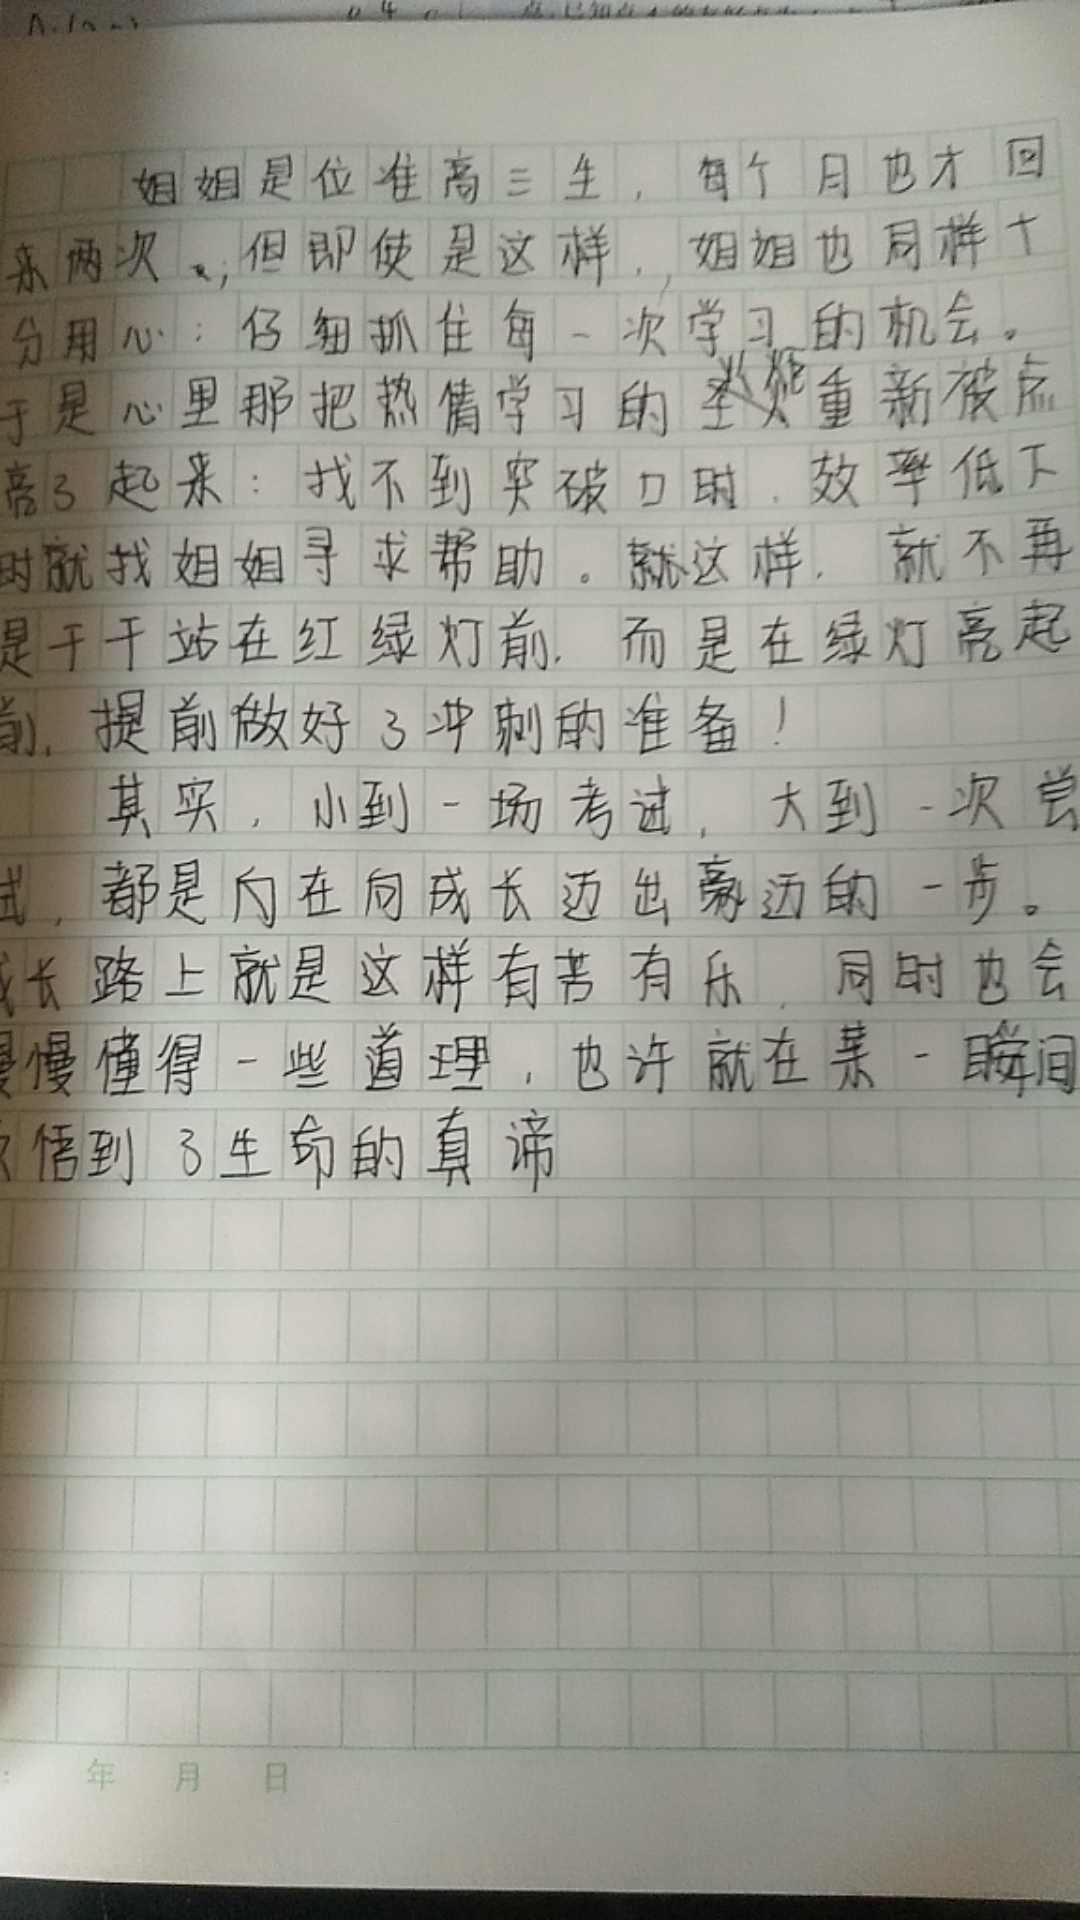 姐姐是位准高三生，每个月也才回
来两次，但即使是这样，姐姐也同样十
分用心：仔细抓住每一次学习的机会。
于是心里那把热情学习的圣火重新被点
亮了起来：找不到突破口时、效率低下
时就找姐姐寻求帮助。就这样，就不再
是干干站在红绿灯前，而是在绿灯亮起
前，提前做好了冲刺的准备！
其实，小到一场考试，大到一次尝
试，都是内在向成长迈出豪迈的一步。
成长路上就是这样有苦有乐，同时也会
慢慢懂得一些道理，也许就在某一瞬间
悟到了生命的真谛
年 月 日